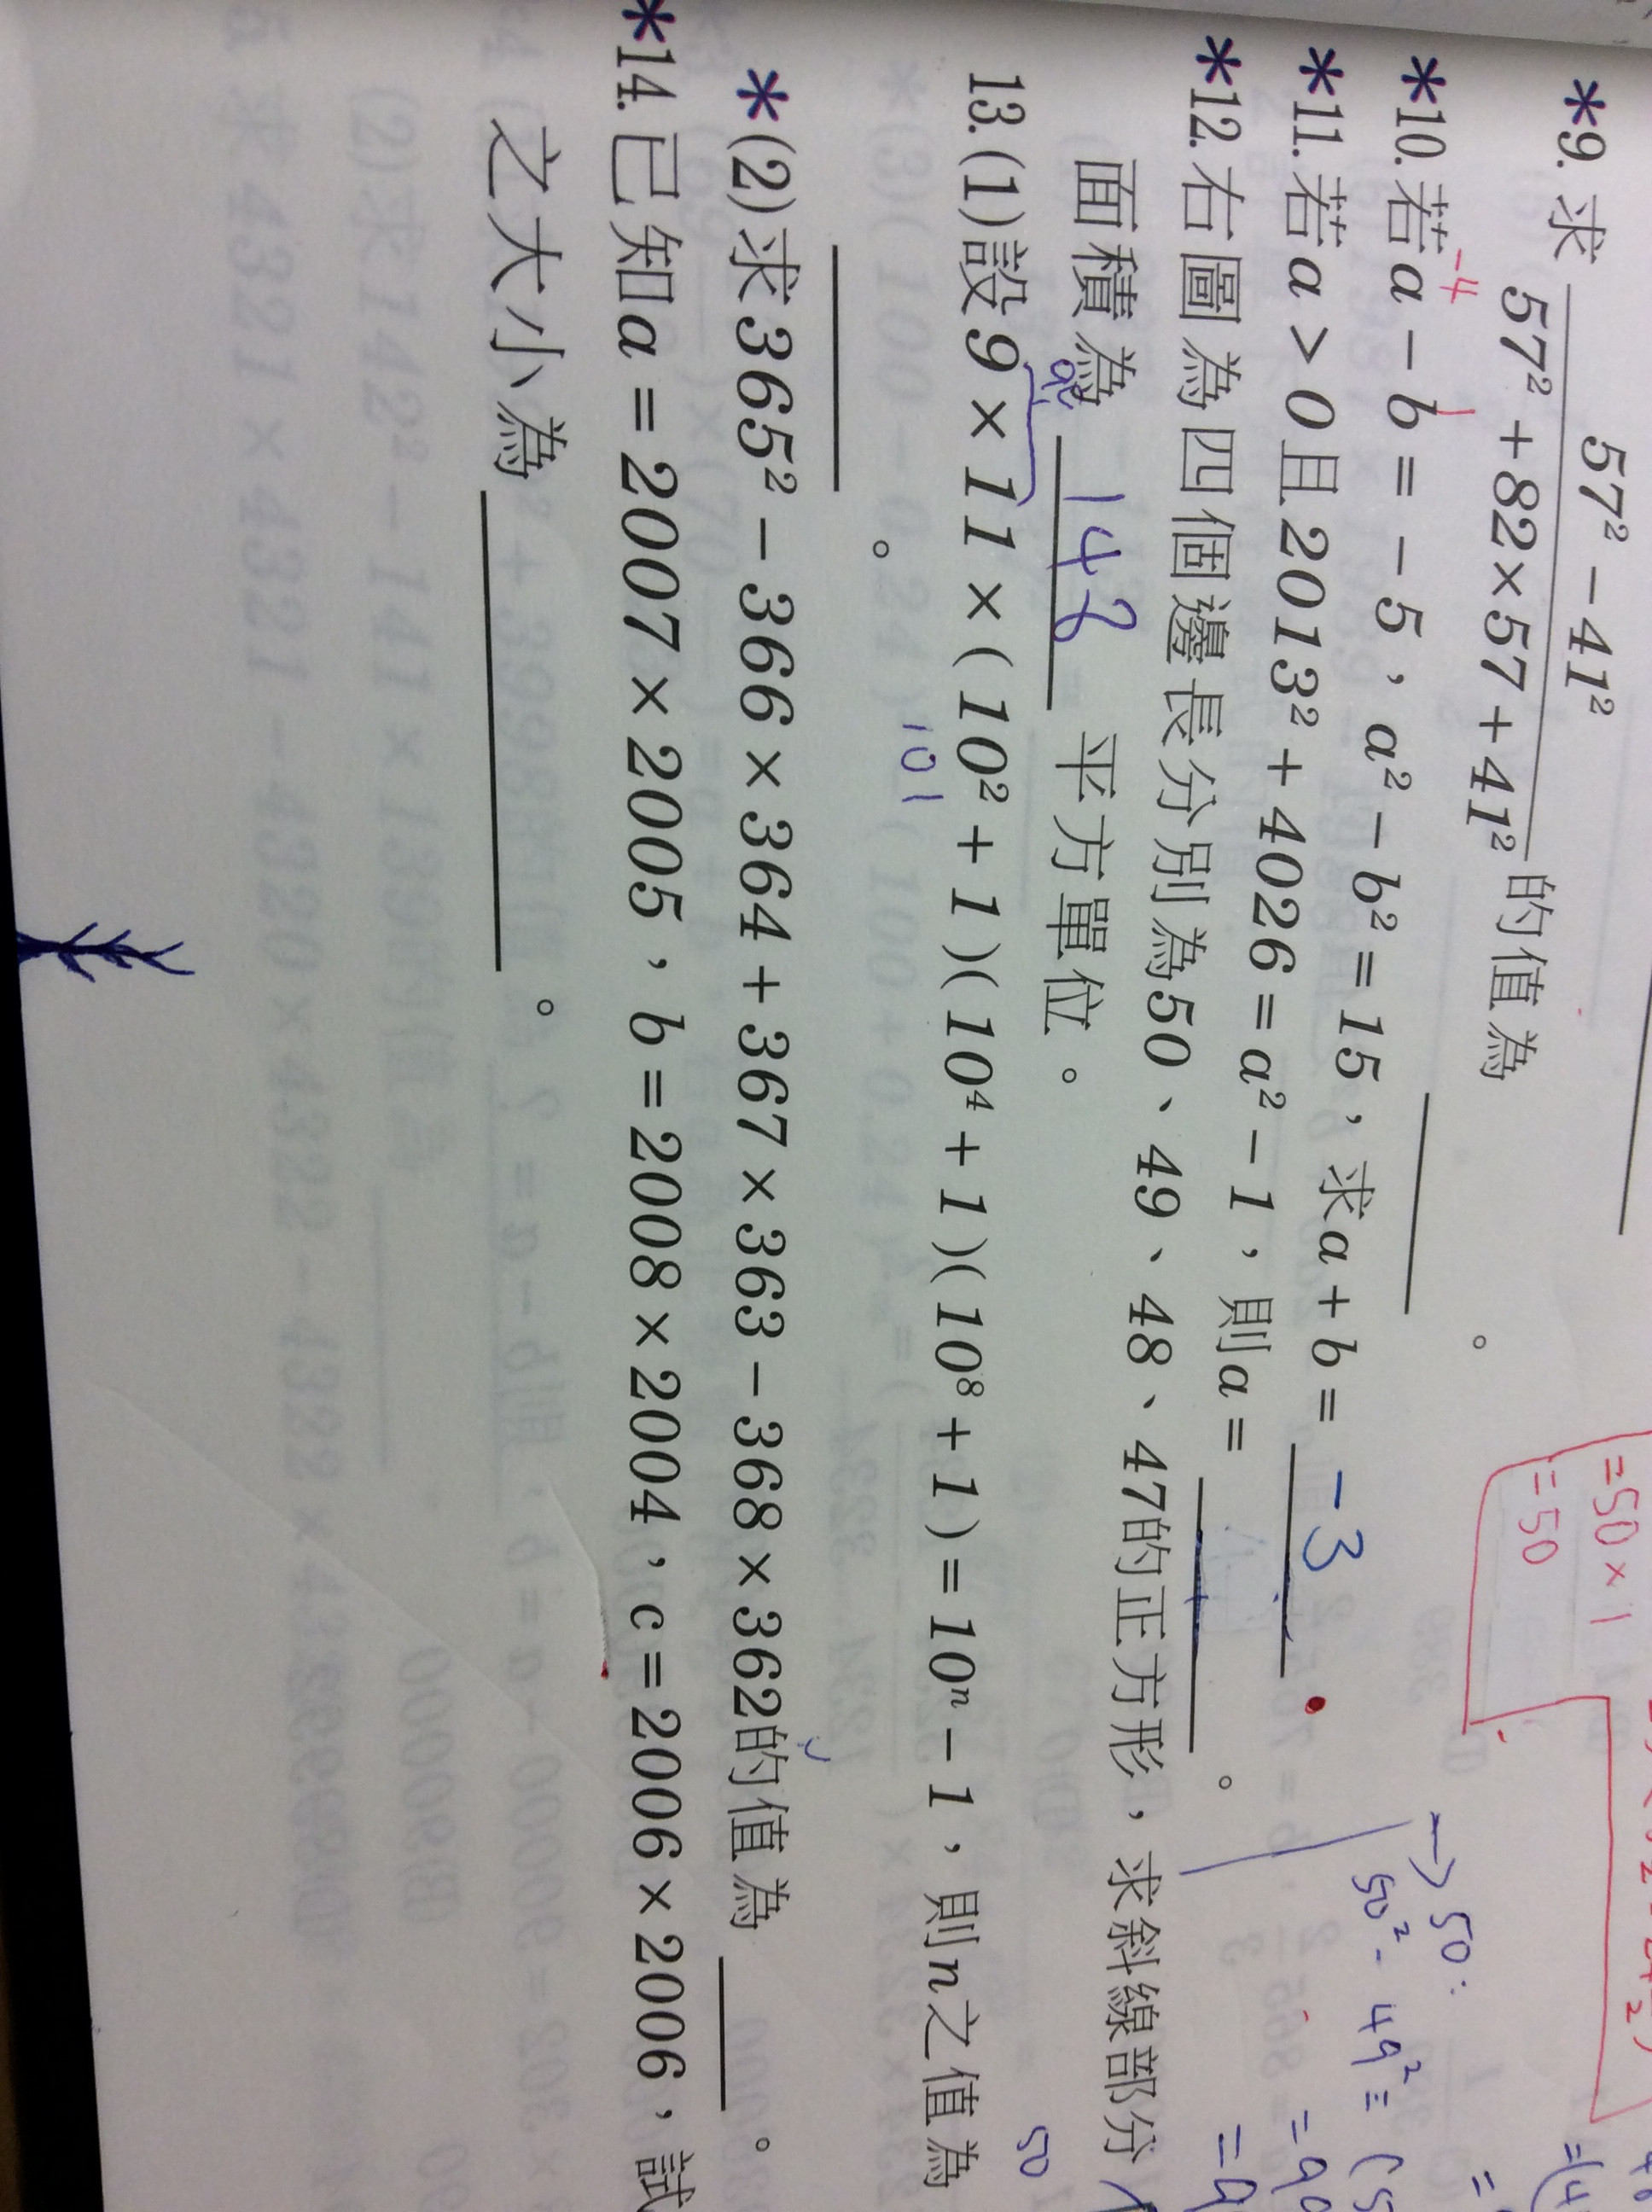 *9. 求 (57² − 41²)/(57² + 82 × 57 + 41²) 的值為 。
-4 1
*10. 若a − b = − 5，a² − b² = 15，求a + b = -3
*11. 若a > 0且2013² + 4026 = a² − 1，則a = 。
*12. 右圖為四個邊長分別為50、49、48、47的正方形，求斜線部分
面積為 148 平方單位。
13. (1)設9 × 11 × ( 10² + 1 )( 10⁴ + 1 )( 10⁸ + 1 ) = 10ⁿ − 1，則n之值為
101
。
*(2)求365² − 366 × 364 + 367 × 363 − 368 × 362的值為 。
*14. 已知a = 2007 × 2005，b = 2008 × 2004，c = 2006 × 2006，試
之大小為 。
=50×1
=50
→50:
50² - 49² = (5
=99
50